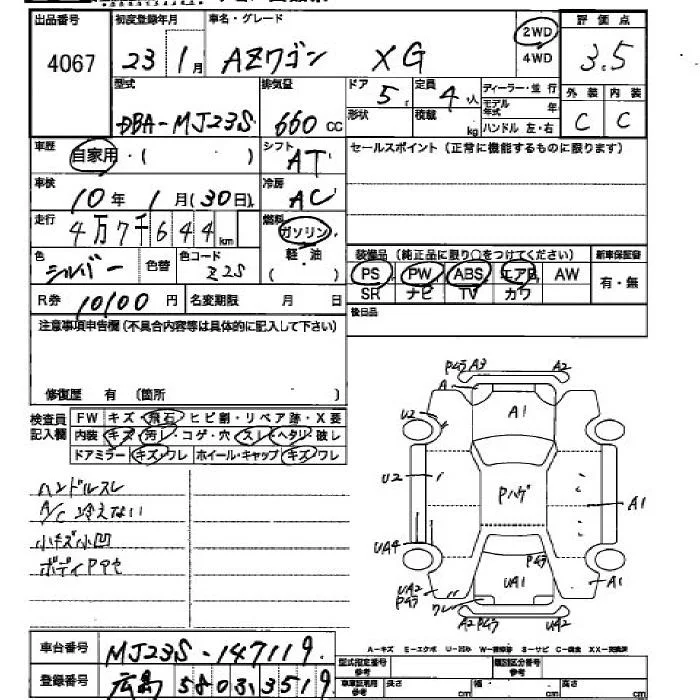 出品番号 初度登録年月 車名・グレード 2WD 4WD 評価点
4067 23 1月 AZワゴン XG 3.5
型式 排気量 ドア 定員 ディーラー・並行 外装 内装
DBA-MJ23S 660 cc 5 4人 モデル年式 年 C C
形状 積載 kg ハンドル 左・右
車歴 自家用・( ) シフト AT セールスポイント(正常に機能するものに限ります)
車検 10年 1月(30日) 冷房 AC
走行 4万7千644km 燃料 ガソリン 軽・油 ( )
色 シルバー 色替 色コード Z2S
装備品(純正品に限り○をつけてください) 新車保証書
PS PW ABS エアB AW 有・無
SR ナビ TV カワ
R券 10100円 名変期限 月 日 後日品
注意事項申告欄(不具合内容等は具体的に記入して下さい)
修復歴 有 (箇所 )
検査員記入欄 FW キズ・飛石・ヒビ割・リペア跡・X要
内装 キズ・汚れ・コゲ・穴・スレ・ヘタリ・破レ
ドアミラー キズ・ワレ ホイール・キャップ キズ・ワレ
ハンドルスレ
A/C 冷えない
小キズ小凹
ボディPPセ
PムラA3 A2
A A1
U2
U2 Pハゲ A1
UA4 Pムラ
UA2 Pムラ UA1 A1
ワレ
A2Pムラ UA2
A-キズ E-エクボ U-凹み W-補修跡 S-サビ C-腐食 XX-交換済
車台番号 MJ23S-147119
登録番号 広島 580 3519
型式指定番号 参考 類別区分番号 参考
車検証専用 参考 長さ cm 幅 cm 高さ cm